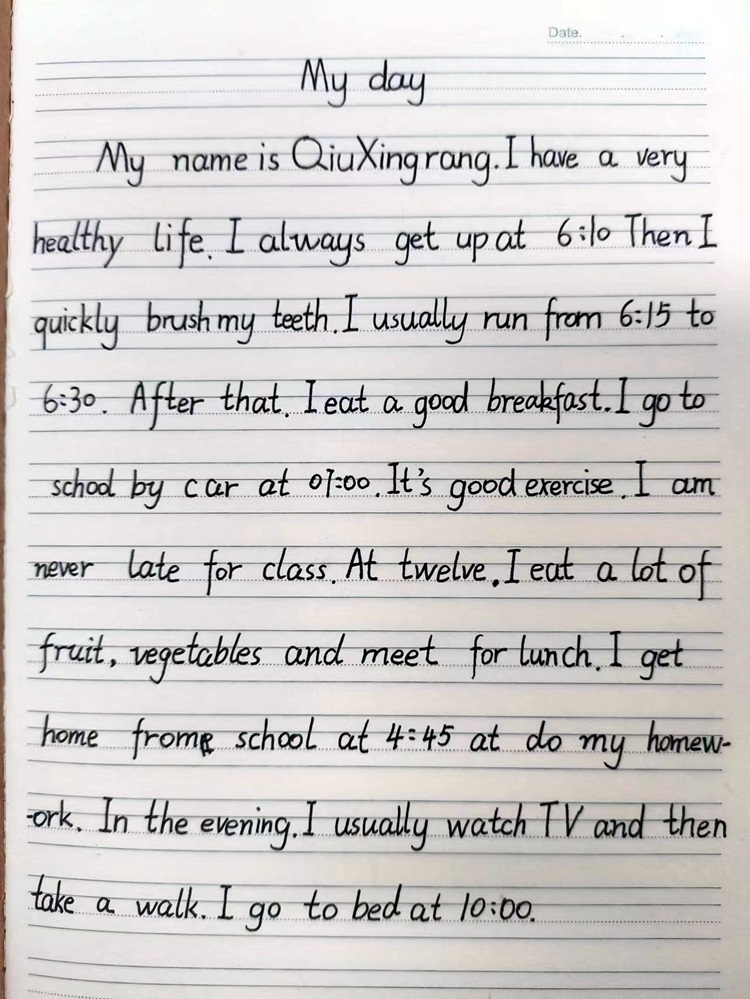 Date.
My day
My name is QiuXingrang. I have a very
healthy life. I always get up at 6:10 Then I
quickly brush my teeth. I usually run from 6:15 to
6:30. After that. I eat a good breakfast. I go to
school by car at 07:00. It's good exercise. I am
never late for class. At twelve. I eat a lot of
fruit, vegetables and meet for lunch. I get
home from school at 4:45 at do my homew-
-ork. In the evening. I usually watch TV and then
take a walk. I go to bed at 10:00.